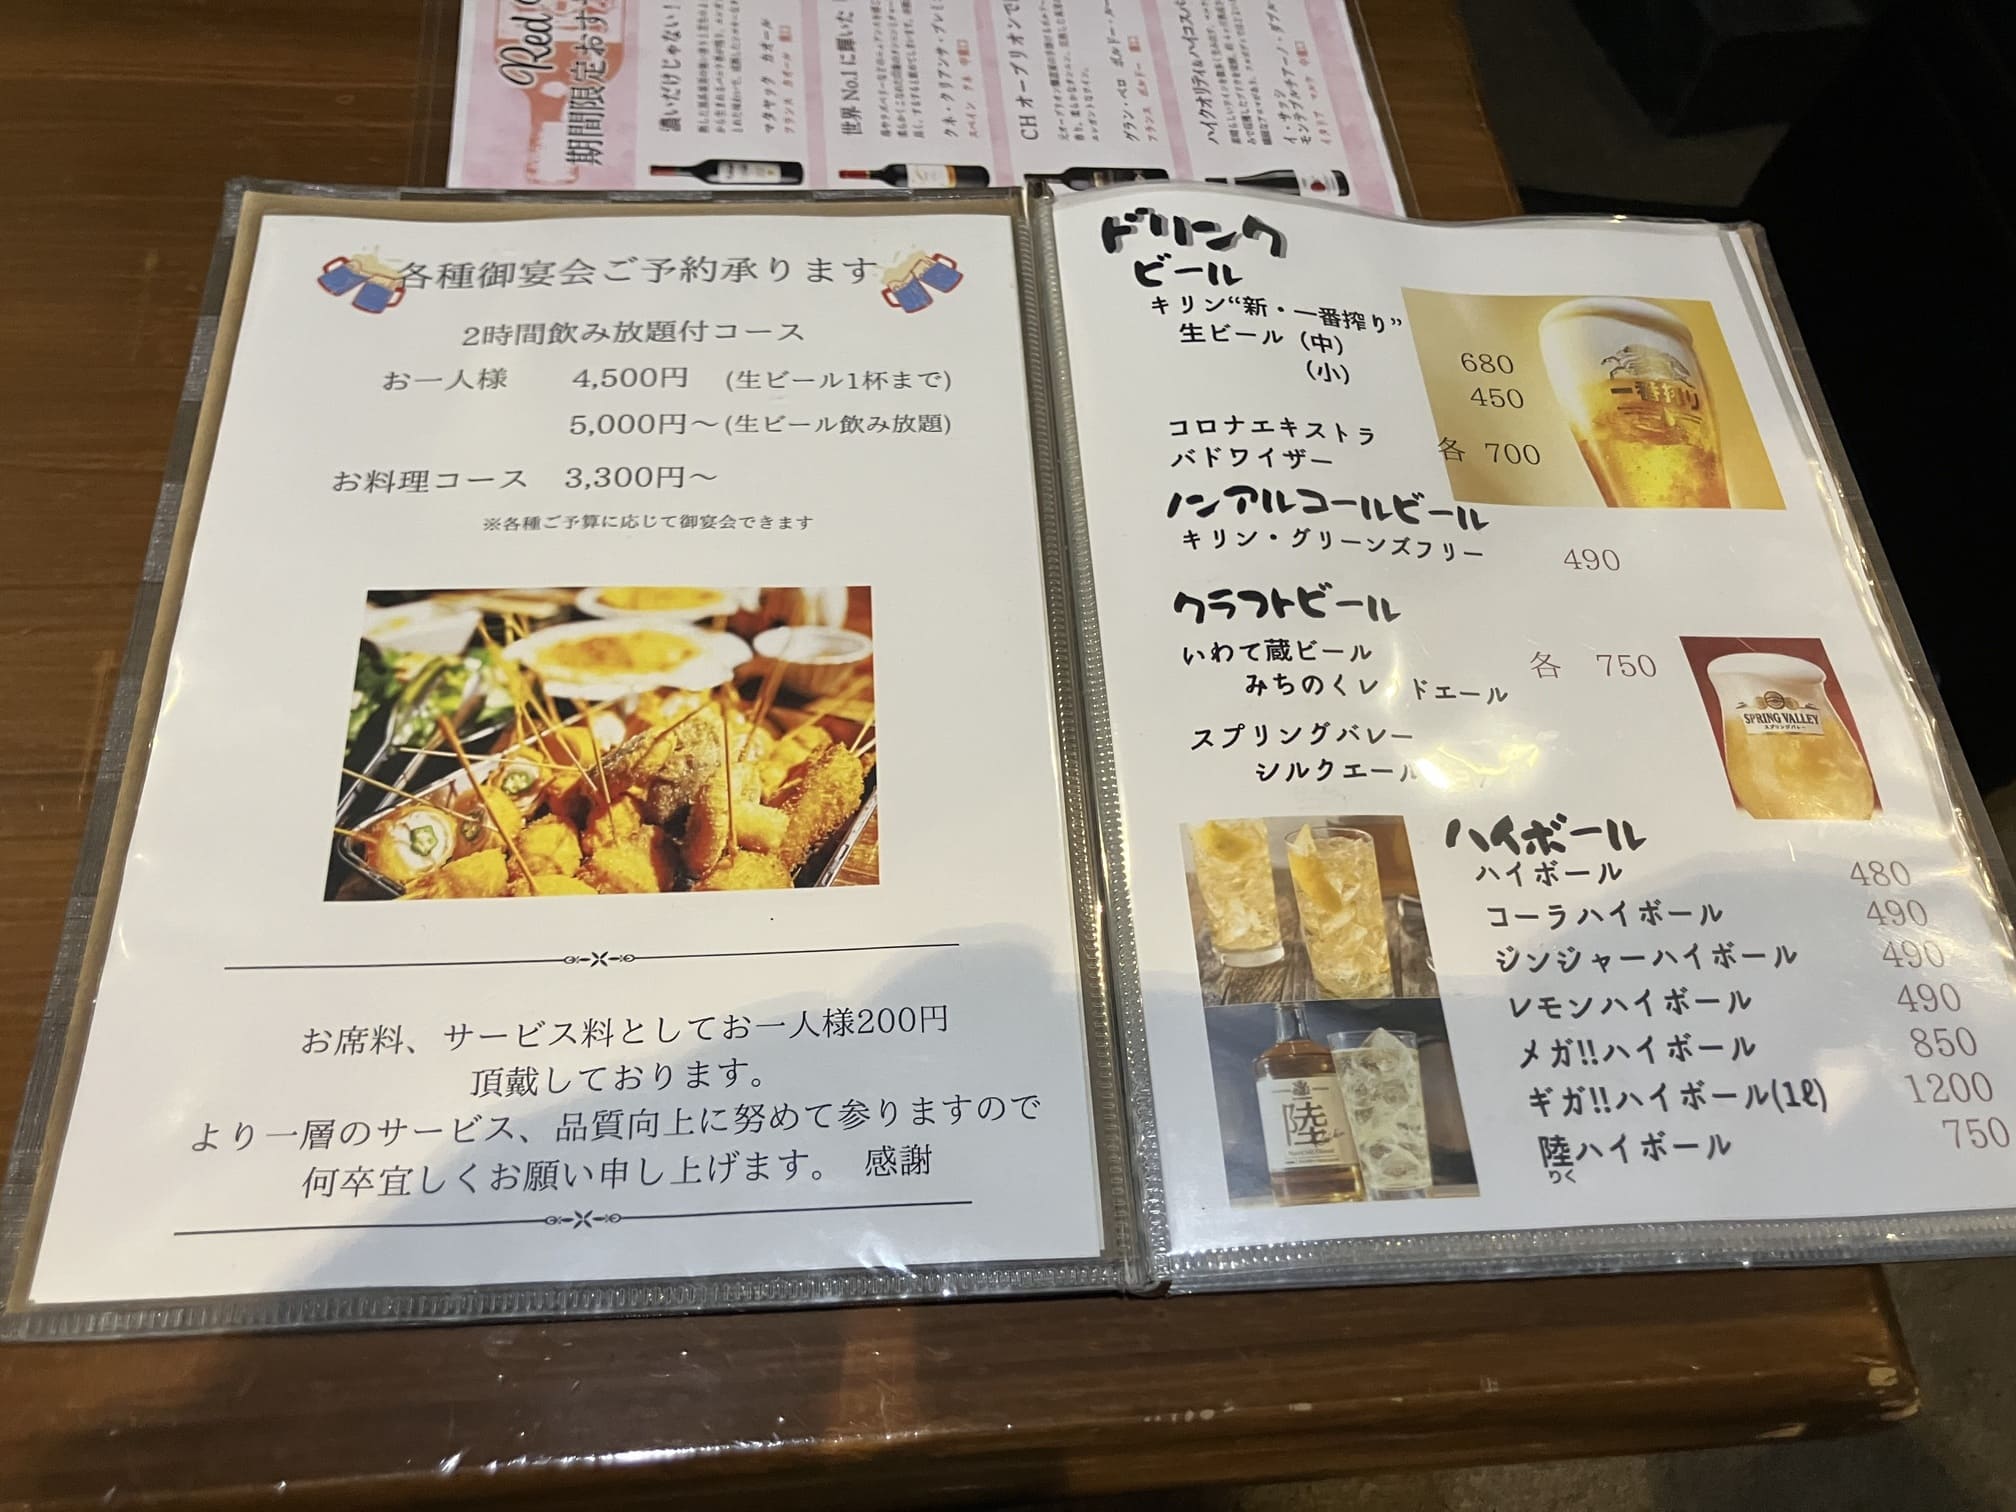 Red
期間限定おすす
濃いだけじゃない！
マタヤック カオール
フランス カオール 重口
世界No.1に輝いた
クネ・クリアンサ・プレミ
スペイン クネ 中重口
CH オーブリオンで
グラン・ペロ ボルドー・ルー
フランス ボルドー 重口
ハイクオリティ&ハイコスパ
イ・サッシ
モンテプルチアーノ・ダブル
イタリア マルケ 中重口
各種御宴会ご予約承ります
2時間飲み放題付コース
お一人様 4,500円 (生ビール1杯まで)
5,000円～(生ビール飲み放題)
お料理コース 3,300円～
※各種ご予算に応じて御宴会できます
お席料、サービス料としてお一人様200円
頂戴しております。
より一層のサービス、品質向上に努めて参りますので
何卒宜しくお願い申し上げます。 感謝
ドリンク
ビール
キリン“新・一番搾り”
生ビール (中) 680
(小) 450
コロナエキストラ
バドワイザー 各 700
一番搾り
ノンアルコールビール
キリン・グリーンズフリー 490
クラフトビール
いわて蔵ビール 各 750
みちのくレッドエール
スプリングバレー
シルクエール
SPRING VALLEY
スプリングバレー
ハイボール
ハイボール 480
コーラハイボール 490
ジンジャーハイボール 490
レモンハイボール 490
メガ!!ハイボール 850
ギガ!!ハイボール(1ℓ) 1200
陸ハイボール 750
りく
陸